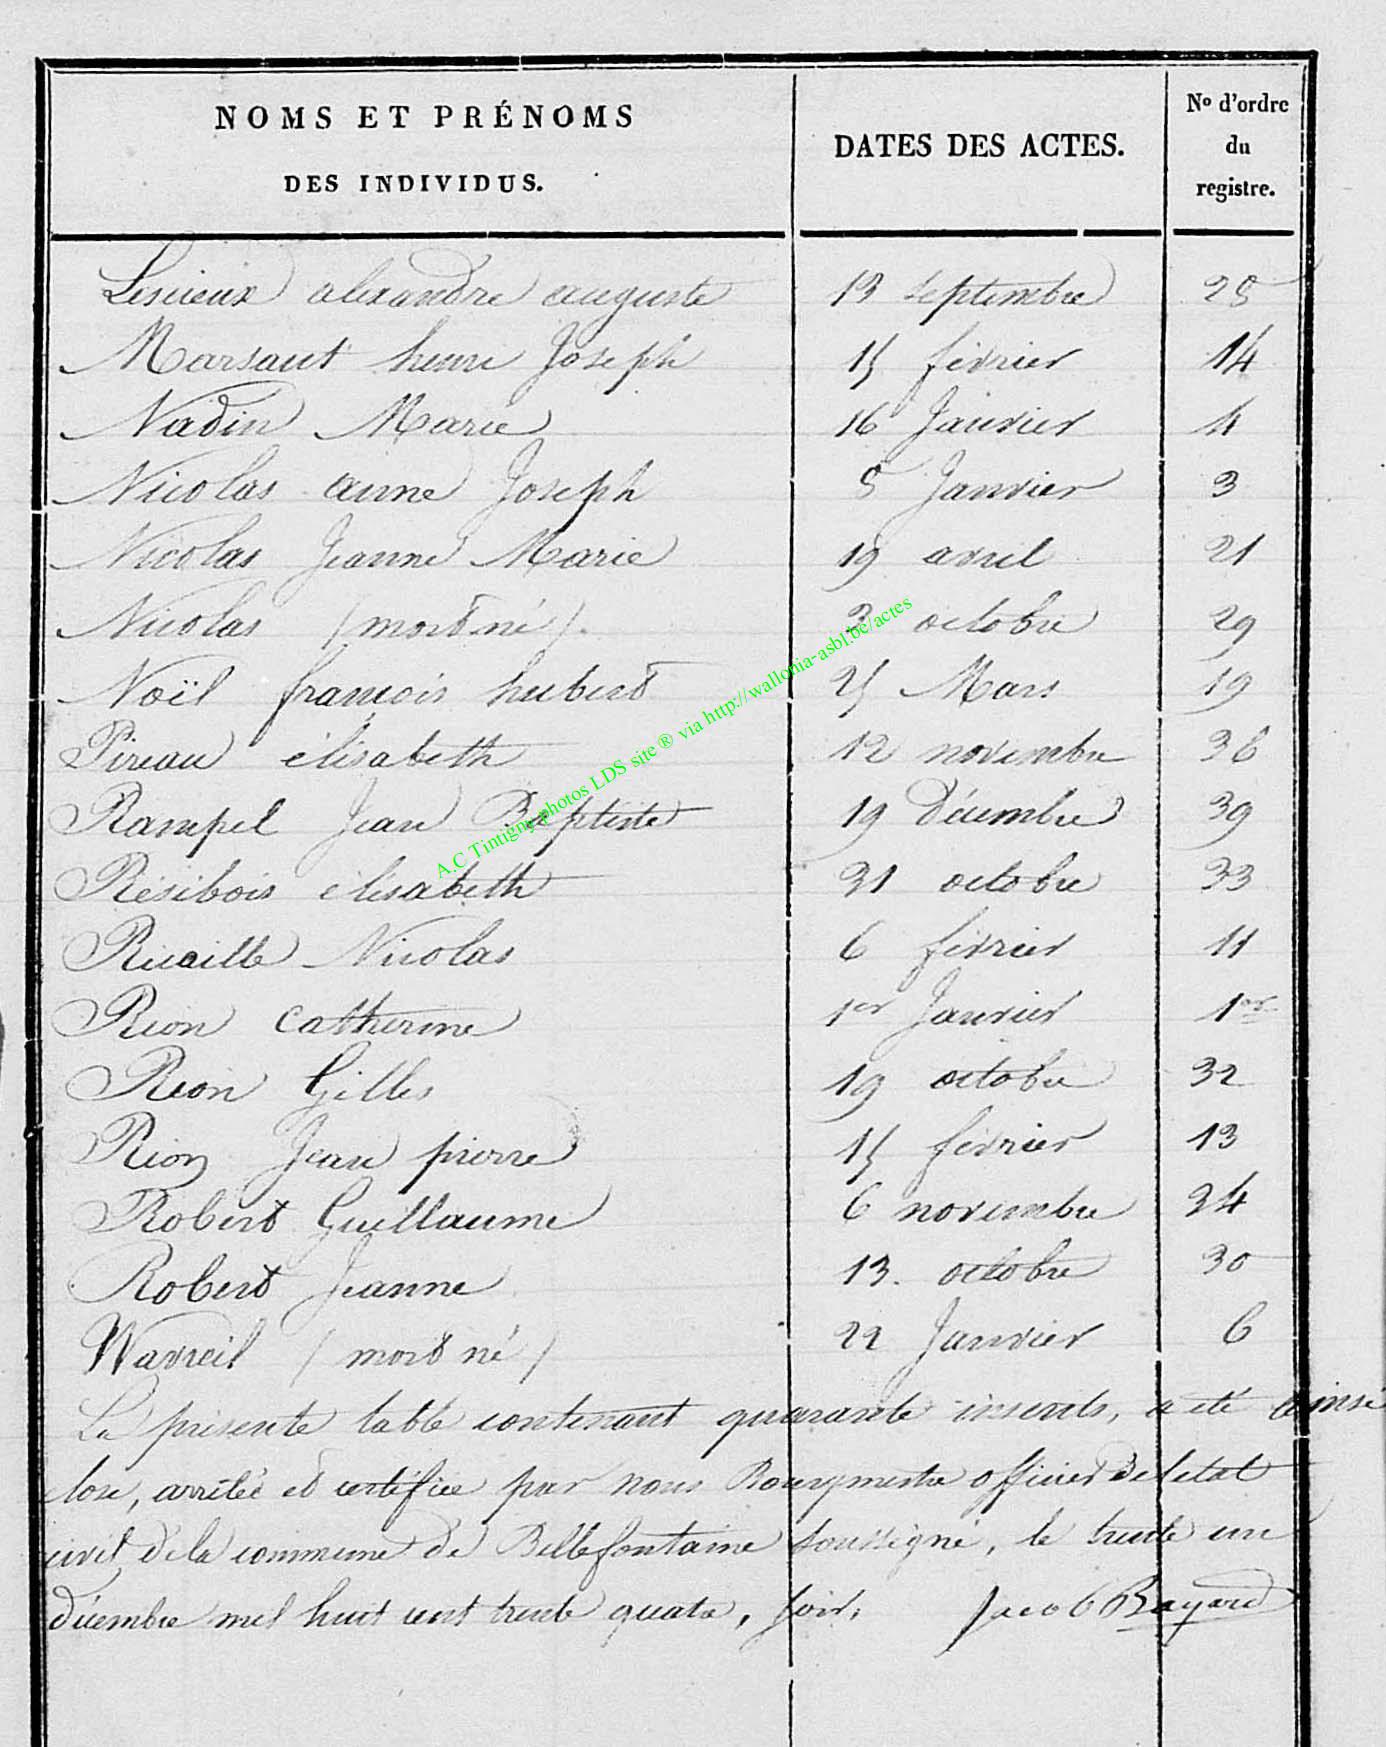 NOMS ET PRÉNOMS
DES INDIVIDUS.
DATES DES ACTES.
N° d'ordre
du
registre.
Lesuieux alexandre auguste 13 septembre 28
Marsaut henri Joseph 15 février 14
Nadin Marie 16 Janvier 4
Nicolas anne Joseph 8 Janvier 3
Nicolas Jeanne Marie 19 avril 21
Nicolas (mort-né). 3 octobre 29
Noël françois hubert 25 Mars 19
Pireau élisabeth 12 novembre 36
Rampel Jean Baptiste 19 Décembre 39
Résibois élisabeth 31 octobre 33
Ricaille Nicolas 6 février 11
Rion Catherine 1er Janvier 1er
Rion Gilles 19 octobre 32
Rion Jean pierre 15 février 13
Robert Guillaume 6 novembre 34
Robert Jeanne 13. octobre 30
Wavreil (mort né) 22 Janvier 6
La présente table contenant quarante inscrits, a été ainsi
close, arrêtée et certifiée par nous Bourgmestre officier de l'état
civil de la commune de Bellefontaine soussigné, le trente un
décembre mil huit cent trente quatre, soir. Jacob Bayard
A.C Tintigny photos LDS site ® via http://wallonia-asbl.be/actes